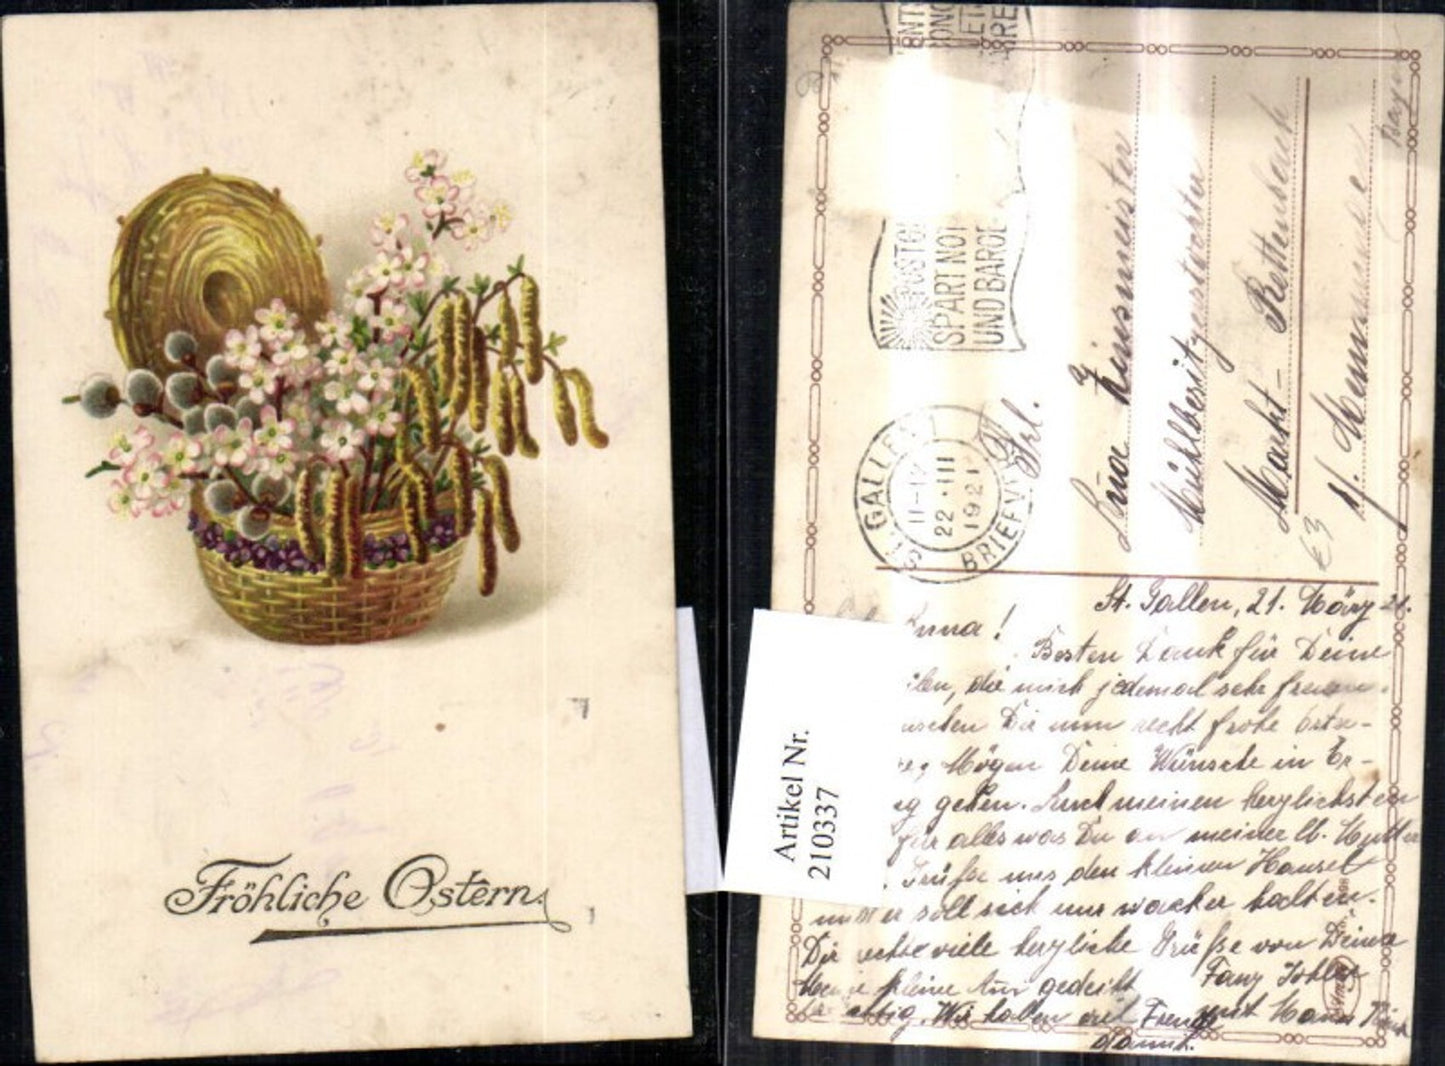 Fröhliche Ostern.
Artikel Nr.
210337
POSTCH
SPART NOT
UND BARGE
ST. GALLEN
11-12
22·III
1921
BRIEFV
Frl.
Anna Zinsmeister
Mühlbesitzerstochter
Markt-Rettenbach
b/. Memmingen
Bayern
€3
St. Gallen, 21. März 21.
Anna!
Besten Dank für Deine
ilen, die mich jedesmal sehr freuen.
nschen Dir nun recht frohe Oster-
Mögen Deine Wünsche in Er-
ng gehen. Auch meinen herzlichsten
für alles was Du an meiner lb. Mutter
Grüße uns den kleinen Hansel
er soll sich nur wacker halten.
Dir recht viele herzliche Grüße von Deiner
kleine gedeiht
Wir haben viel Freude
damit.